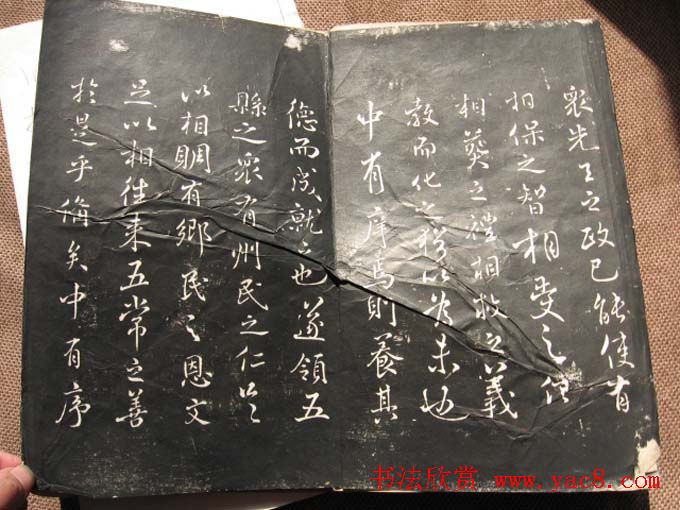 眾先王之政已能使有
相保之智相受之信
相葬之禮相救之義
教而化之猶以為未也
中有序焉則養其
德而成就之也遂領五
縣之眾有州民之仁足
以相賙有鄉民之恩
足以相往來五常之善
於是乎備矣中有序
书法欣赏 www.yac8.com